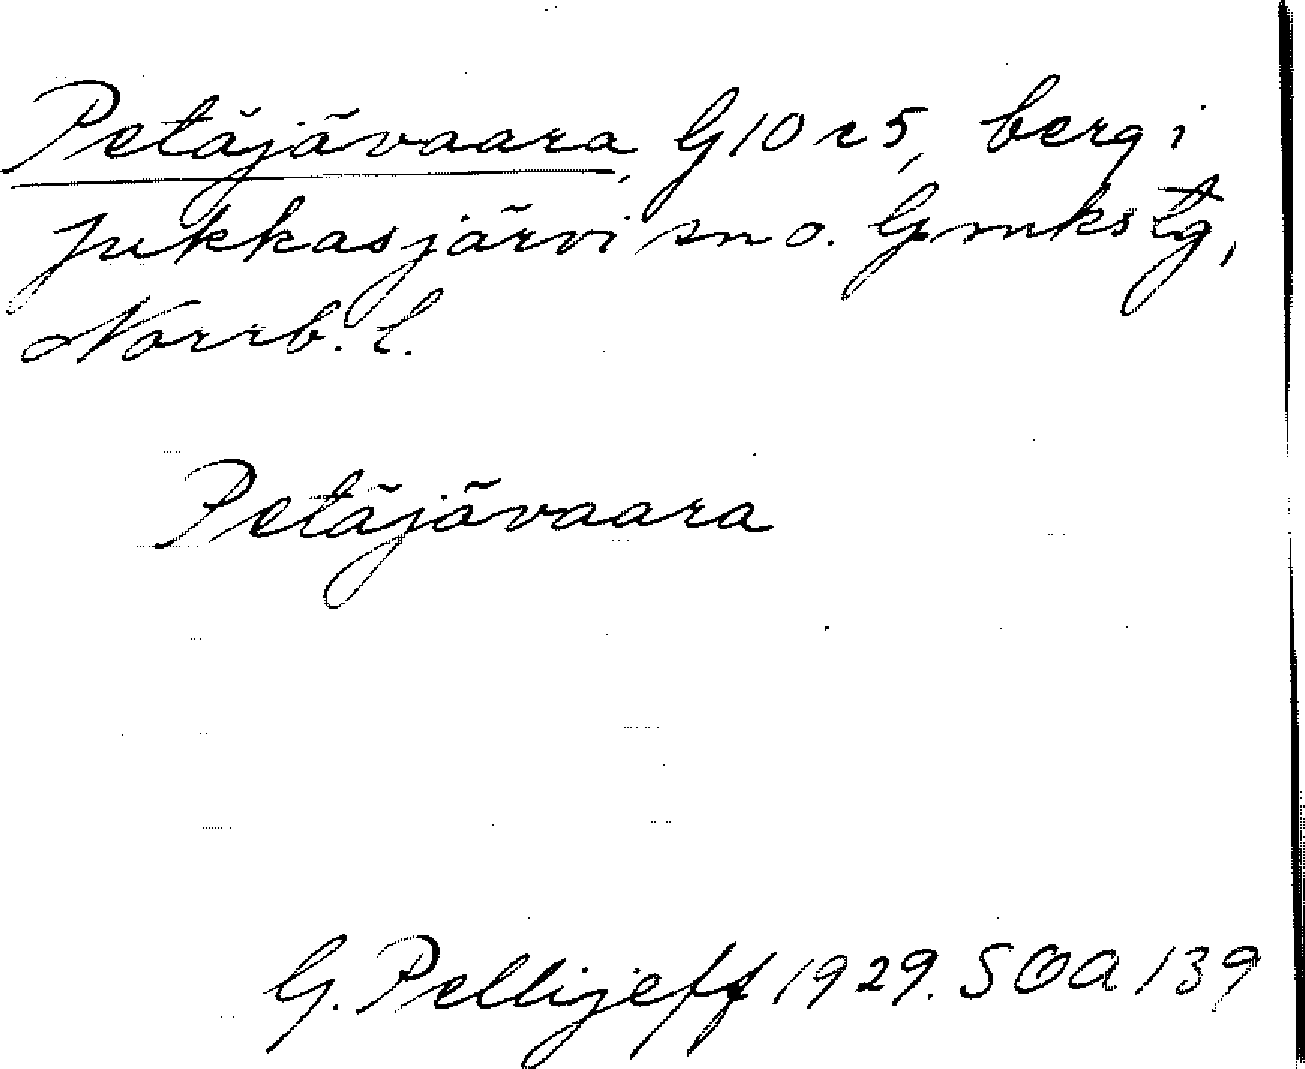 Petäjävaara, G10 c5, berg i
Jukkasjärvi sn o. Gmks tg,
Norrb. l.
Petäjävaara
G. Pellijeff 1929. SOA 139